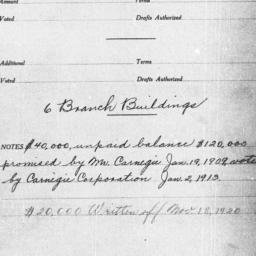 Amount Terms
Voted Drafts Authorized
Additional Terms
Voted Drafts Authorized
6 Branch Buildings
NOTES $40,000, unpaid balance $120,000
promised by Mr. Carnegie Jan. 19, 1902, voted
by Carnegie Corporation Jan. 2, 1913.
$20,000 Written off Nov. 18, 1920